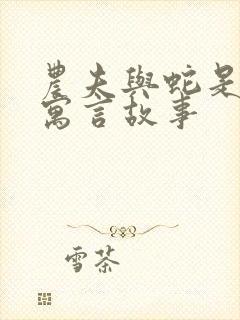 農夫與蛇是
寓言故事
雪茶